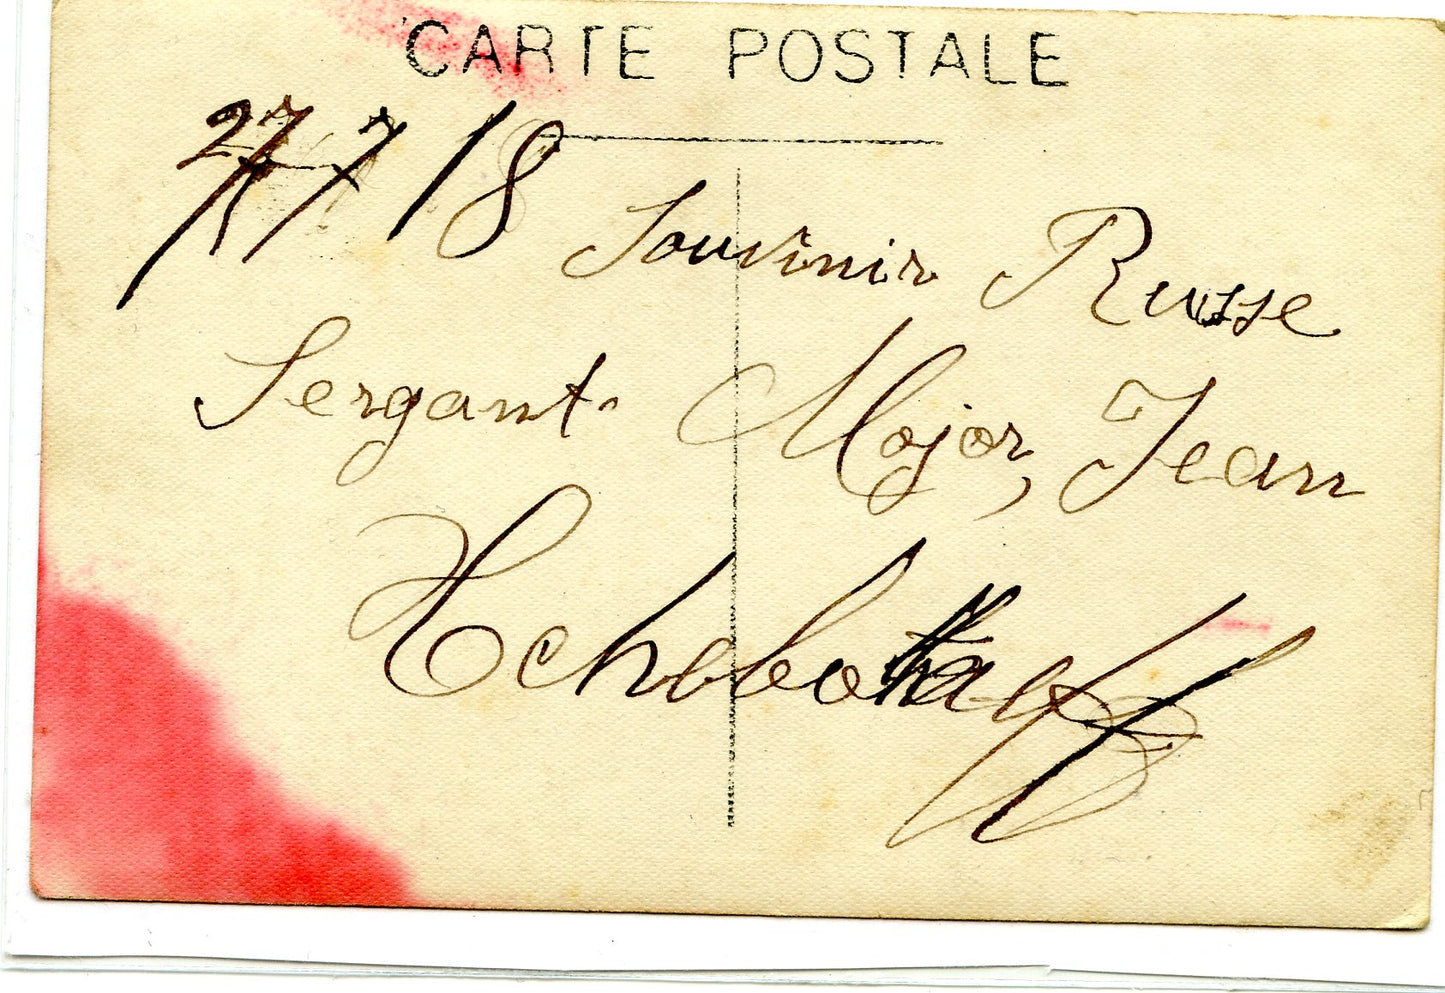 CARTE POSTALE
27/7/18
Souvinir Russe
Sergant Major, Jean